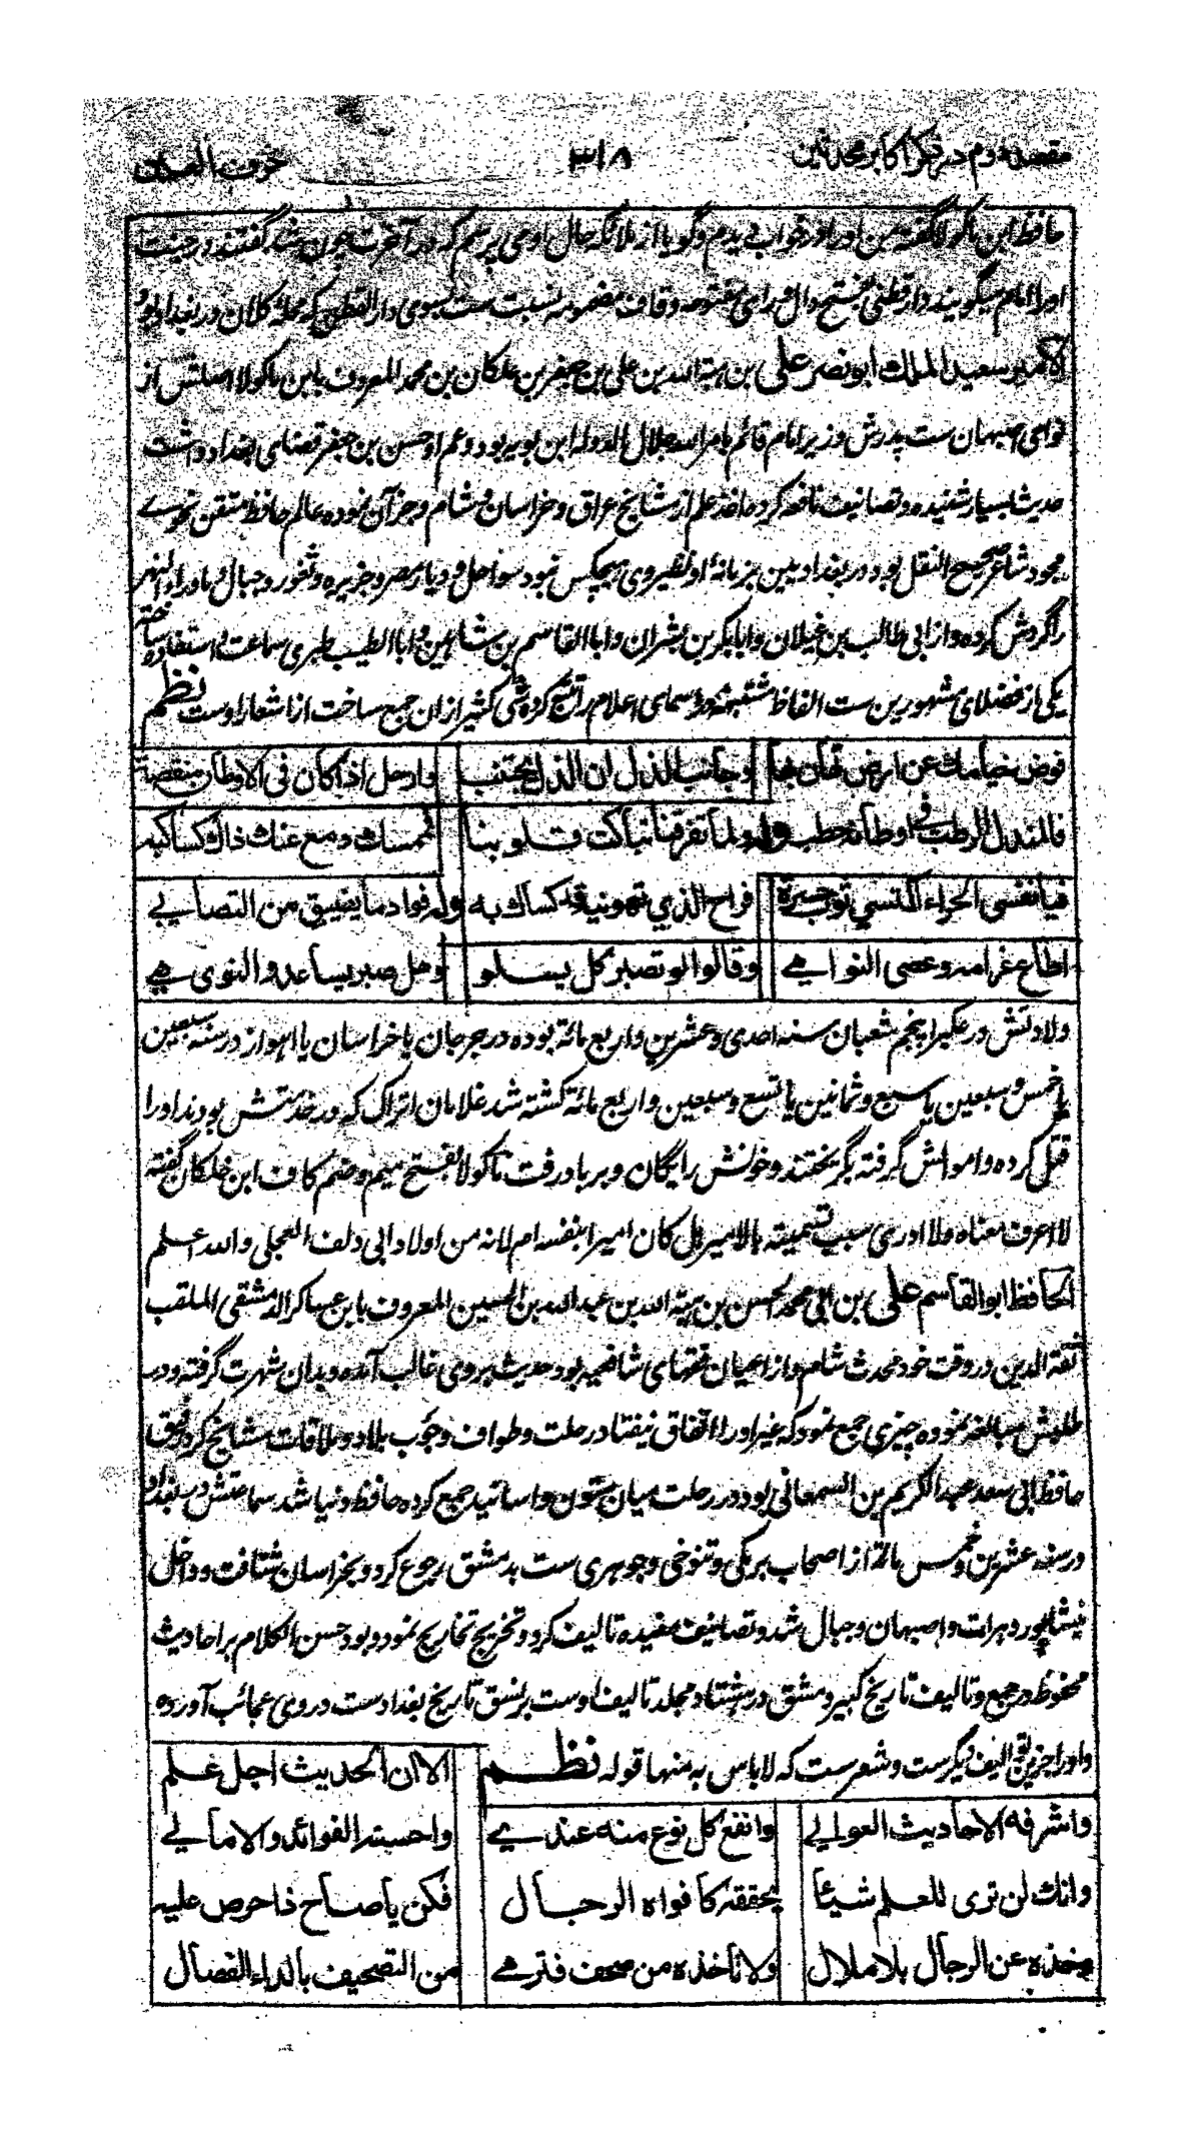 مقصد دوم در ذکر اکابر محدثین ۳۱۸ حرف العین
حافظ ابن ماکولا گفته من او را در خواب دیدم و گویا از ملائکه حال او می پرسم که در آخرت چون شد گفتند در جنت
او را امام میگویند دارقطنی بفتح دال و رای مفتوحه و قاف مضمومه نسبت ست بسوی دارالقطن که محله کلان در بغداد بود
الامیر سعید الملک ابو نصر علی بن هبة الله بن علی بن جعفر بن علکان بن محمد المعروف بابن ماکولا اصلش از
نواحی اصبهان ست پدرش وزیر امام قائم بامر الله جلال الدوله ابن بویه بود و عم او حسن بن جعفر قضای بغداد داشت
حدیث بسیار شنیده و تصانیف نافعه کرده اخذ علم از مشایخ عراق و خراسان و شام و جز آن نموده عالم حافظ متقن نحوی
مجود شاعر صحیح النقل بود در بغداد بین بزمانهٔ او نظیر وی هیچکس نبود سواحل و دیار مصر و جزیره و ثغور و جبال و ماوراء النهر
را گردش کرده و از ابی طالب بن غیلان و ابا بکر بن بشران و ابا القاسم بن شاهین و ابا الطیب طبری سماعت و استفاده ساخته
یکی از فضلای مشهورین ست الفاظ مشتبهه در اسمای اعلام را تتبع کرده شی کثیر ازان جمع ساخت از اشعار اوست نظم
قوض خیامک عن ارض تهان بها وجانب الذل ان الذل یجتنب وارحل اذا کان فی الاوطان منقصة
فالمندل الرطب فی اوطانه حطب وله ولما تفرقنا تباکت قلوبنا فممسک دمع عنک ذاک کساکبه
فیا نفسی الحراء البسی ثوب حسرة فراح الذی تهوینه قد کساک به وله فواد ما یفیق من التصابی
اطاع غرامه وعصی النواهی وقالوا لو تصبر کل یسلو وهل صبر یساعد والنوی هی
ولادتش در عکبرا پنجم شعبان سنه احدی وعشرین واربع مائة بوده در جرجان یا خراسان یا اهواز در سنه سبعین
یا خمس وسبعین یا سبع وثمانین یا تسع وسبعین واربع مائة کشته شد غلامان اتراک که در خدمتش بودند او را
قتل کرده و اموالش گرفته بگریختند و خونش رایگان و بر باد رفت ماکولا بفتح میم وضم کاف ابن خلکان گفته
لا اعرف معناه ولا ادری سبب تسمیته بالامیر هل کان امیرا بنفسه ام لانه من اولاد ابی دلف العجلی والله اعلم
الحافظ ابو القاسم علی بن ابی محمد الحسن بن هبة الله بن عبد الله بن الحسین المعروف بابن عساکر الدمشقی الملقب
ثقة الدین در وقت خود محدث شام و از اعیان فقهای شافعیه بود حدیث بر وی غالب آمده و بدان شهرت گرفته و در
طلبش مبالغه نموده چیزی جمع نمود که غیر او را اتفاق نیفتاد رحلت و طواف و جوب بلاد و ملاقات مشایخ کرد رفیق
حافظ ابی سعد عبد الکریم بن السمعانی بود در رحلت میان متون و اسانید جمع کرده حافظ دنیا شد سماعتش در بغداد
در سنه عشرین وخمس مائة از اصحاب برمکی و تنوخی و جوهری ست بدمشق رجوع کرد و بخراسان شتافت و داخل
نیشاپور و هرات و اصبهان و جبال شد و تصانیف مفیده تالیف کرد و تخریج تخاریج نمود و بود حسن الکلام بر احادیث
محفوظ در جمع و تالیف تاریخ کبیر دمشق در هشتاد مجلد تالیف اوست بر نسق تاریخ بغداد ست در وی عجائب آورده
و او را جز این تالیف دیگر ست و شعر ست که لا باس به منها قوله نظم الا ان الحدیث اجل علم
واشرفه الاحادیث العوالی وانفع کل نوع منه عندی واحسنه الفوائد والامالی
وانک لن تری للعلم شیئا یحققه کافواه الرجال فکن یا صاح ذا حرص علیه
وخذه عن الرجال بلا ملال ولا تاخذه من صحف فترمی من التصحیف بالداء العضال